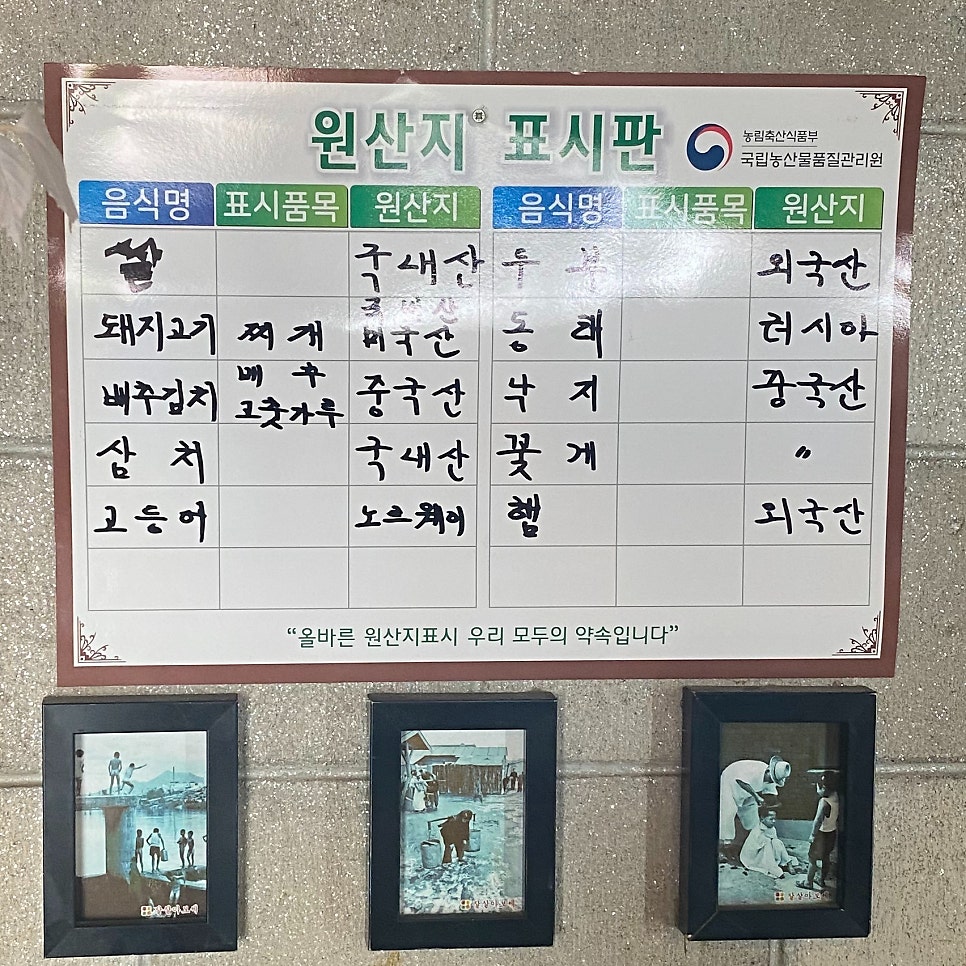 원산지 표시판
농림축산식품부
국립농산물품질관리원
음식명 표시품목 원산지 음식명 표시품목 원산지
쌀 국내산 두부 외국산
돼지고기 찌개 미국산 동태 러시아
배추김치 배추 고춧가루 중국산 낙지 중국산
삼치 국내산 꽃게 〃
고등어 노르웨이 햄 외국산
“올바른 원산지표시 우리 모두의 약속입니다”